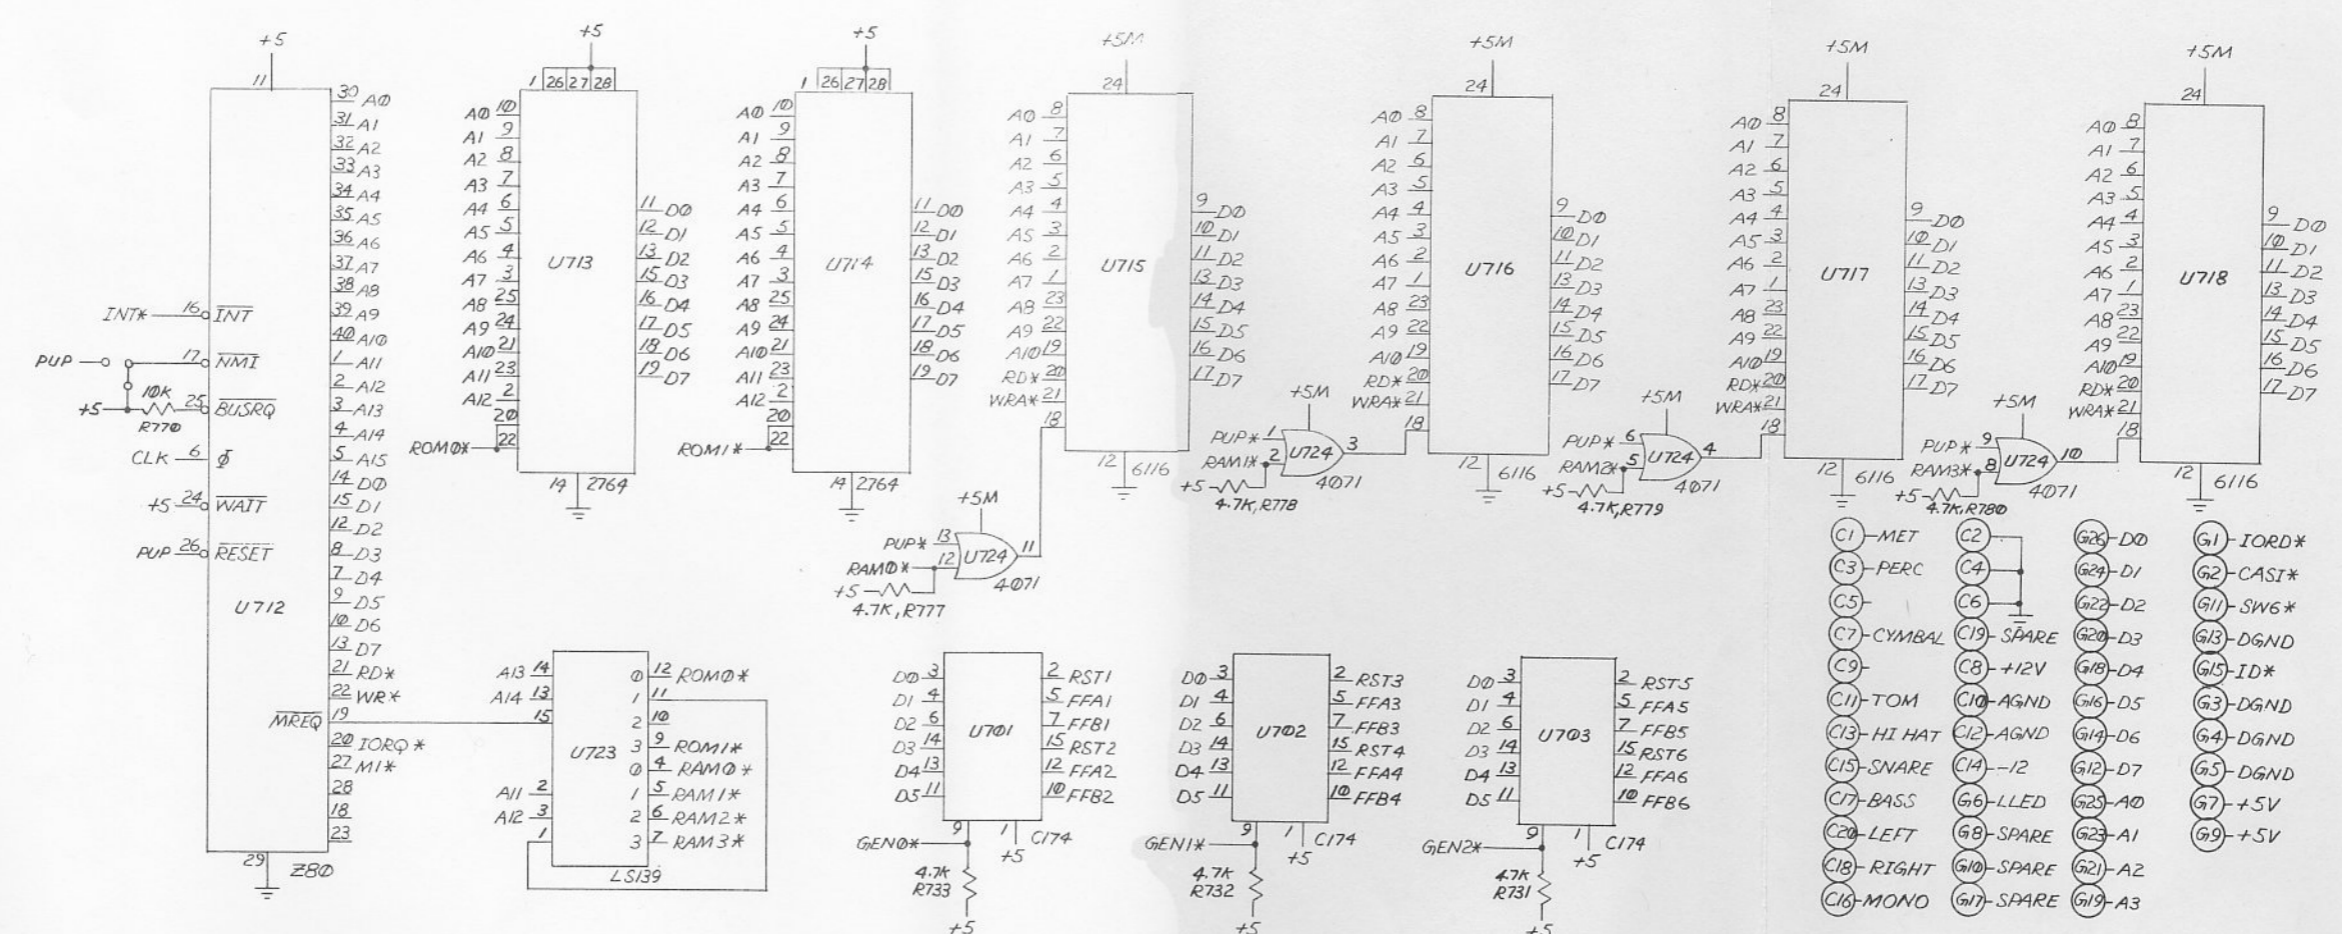 +5
11
30 A0
31 A1
32 A2
33 A3
34 A4
35 A5
36 A6
37 A7
38 A8
39 A9
40 A10
1 A11
2 A12
3 A13
4 A14
5 A15
14 D0
15 D1
12 D2
8 D3
7 D4
9 D5
10 D6
13 D7
21 RD*
22 WR*
MREQ 19
20 IORQ*
27 M1*
28
18
23
INT* 16 INT
PUP 17 NMI
10K
+5 25 BUSRQ
R770
CLK 6 Φ
+5 24 WAIT
PUP 26 RESET
U712
29 Z80
+5
1 26 27 28
A0 10
A1 9
A2 8
A3 7
A4 6
A5 5
A6 4
A7 3
A8 25
A9 24
A10 21
A11 23
A12 2
20
ROM0* 22
U713
11 D0
12 D1
13 D2
15 D3
16 D4
17 D5
18 D6
19 D7
14 2764
+5
1 26 27 28
A0 10
A1 9
A2 8
A3 7
A4 6
A5 5
A6 4
A7 3
A8 25
A9 24
A10 21
A11 23
A12 2
20
ROM1* 22
U714
11 D0
12 D1
13 D2
15 D3
16 D4
17 D5
18 D6
19 D7
14 2764
+5M
24
A0 8
A1 7
A2 6
A3 5
A4 4
A5 3
A6 2
A7 1
A8 23
A9 22
A10 19
RD* 20
WRA* 21
18
U715
9 D0
10 D1
11 D2
13 D3
14 D4
15 D5
16 D6
17 D7
12 6116
+5M
PUP* 13
RAM0* 12
U724
11
4071
+5
4.7K, R777
+5M
24
A0 8
A1 7
A2 6
A3 5
A4 4
A5 3
A6 2
A7 1
A8 23
A9 22
A10 19
RD* 20
WRA* 21
18
U716
9 D0
10 D1
11 D2
13 D3
14 D4
15 D5
16 D6
17 D7
12 6116
+5M
PUP* 1
RAM1* 2
U724
3
4071
+5
4.7K, R778
+5M
24
A0 8
A1 7
A2 6
A3 5
A4 4
A5 3
A6 2
A7 1
A8 23
A9 22
A10 19
RD* 20
WRA* 21
18
U717
9 D0
10 D1
11 D2
13 D3
14 D4
15 D5
16 D6
17 D7
12 6116
+5M
PUP* 6
RAM2* 5
U724
4
4071
+5
4.7K, R779
+5M
24
A0 8
A1 7
A2 6
A3 5
A4 4
A5 3
A6 2
A7 1
A8 23
A9 22
A10 19
RD* 20
WRA* 21
18
U718
9 D0
10 D1
11 D2
13 D3
14 D4
15 D5
16 D6
17 D7
12 6116
+5M
PUP* 9
RAM3* 8
U724
10
4071
+5
4.7K, R780
A13 14
A14 13
15
A11 2
A12 3
1
U723
0 12 ROM0*
1 11
2 10
3 9 ROM1*
0 4 RAM0*
1 5 RAM1*
2 6 RAM2*
3 7 RAM3*
LS139
D0 3
D1 4
D2 6
D3 14
D4 13
D5 11
U701
2 RST1
5 FFA1
7 FFB1
15 RST2
12 FFA2
10 FFB2
9 1 C174
GEN0*
+5
4.7K
R733
+5
D0 3
D1 4
D2 6
D3 14
D4 13
D5 11
U702
2 RST3
5 FFA3
7 FFB3
15 RST4
12 FFA4
10 FFB4
9 1 C174
GEN1*
+5
4.7K
R732
+5
D0 3
D1 4
D2 6
D3 14
D4 13
D5 11
U703
2 RST5
5 FFA5
7 FFB5
15 RST6
12 FFA6
10 FFB6
9 1 C174
GEN2*
+5
4.7K
R731
+5
C1 -MET
C3 -PERC
C5 -
C7 -CYMBAL
C9 -
C11 -TOM
C13 -HI HAT
C15 -SNARE
C17 -BASS
C20 -LEFT
C18 -RIGHT
C16 -MONO
C2
C4
C6
C19 -SPARE
C8 -+12V
C10 -AGND
C12 -AGND
C14 --12
G6 -LLED
G8 -SPARE
G10 -SPARE
G17 -SPARE
G26 -D0
G24 -D1
G22 -D2
G20 -D3
G18 -D4
G16 -D5
G14 -D6
G12 -D7
G25 -A0
G23 -A1
G21 -A2
G19 -A3
G1 -IORD*
G2 -CASI*
G11 -SW6*
G13 -DGND
G15 -ID*
G3 -DGND
G4 -DGND
G5 -DGND
G7 -+5V
G9 -+5V